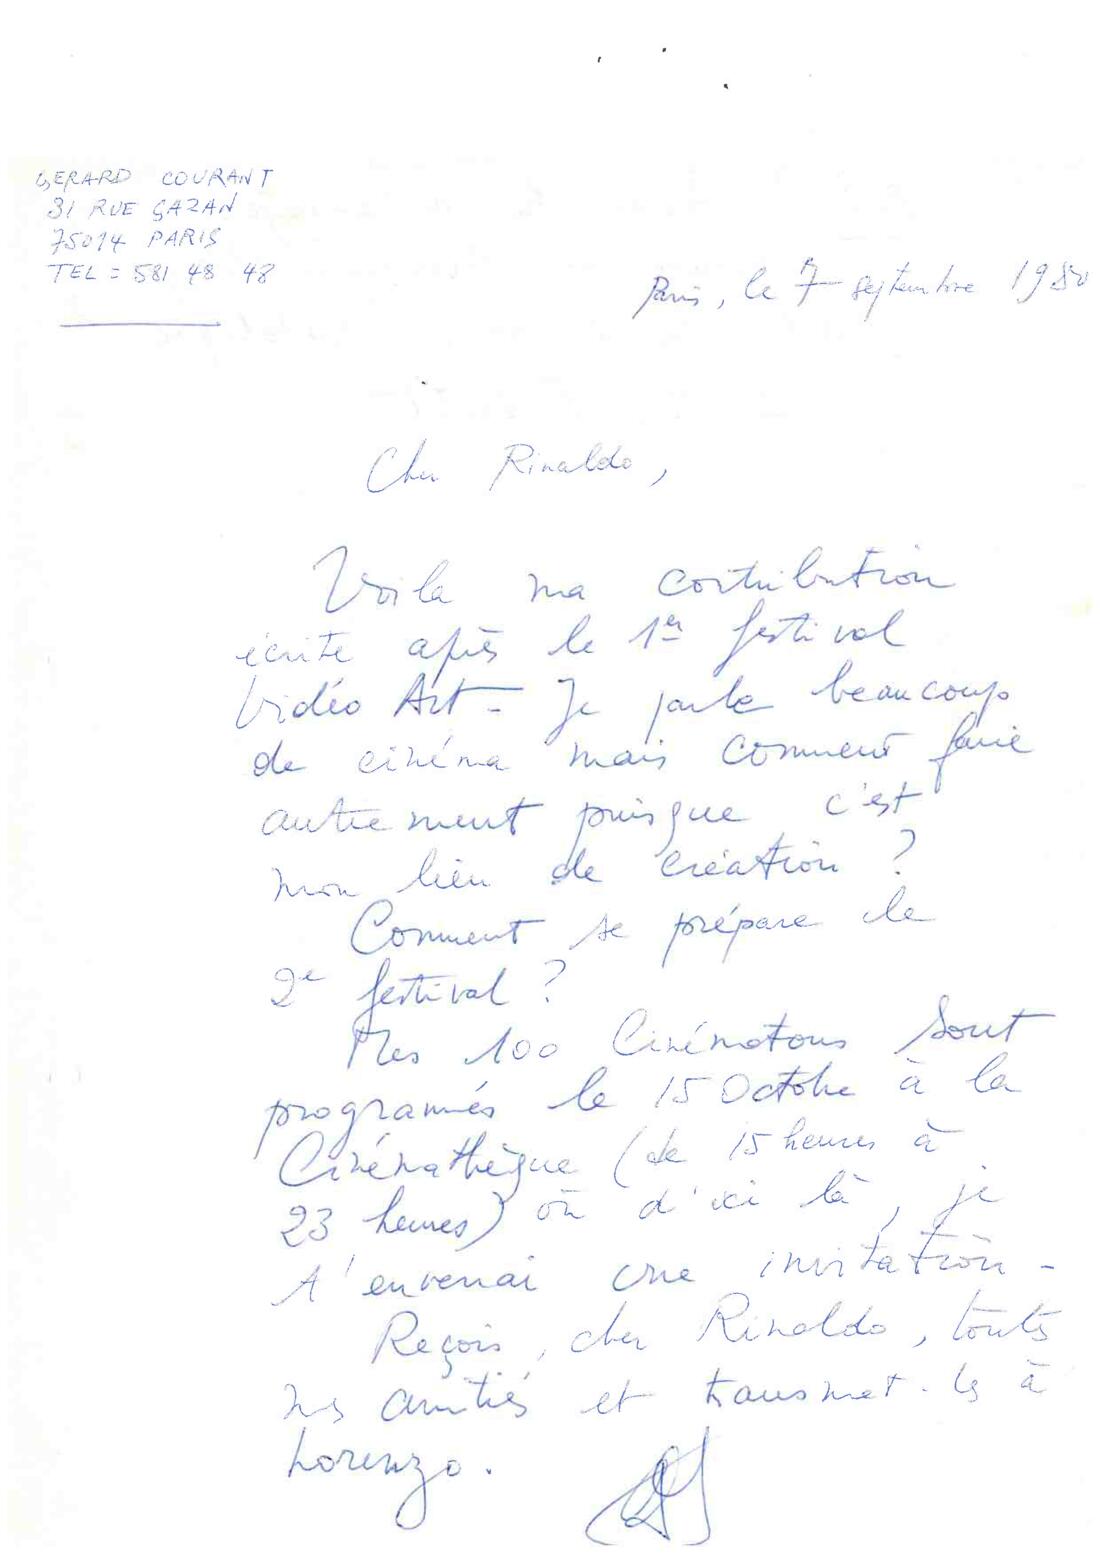 GERARD COURANT
31 RUE GAZAN
75014 PARIS
TEL = 581 48 48
Paris, le 7 septembre 1980
Cher Rinaldo,
Voila ma contribution
écrite après le 1er festival
Vidéo Art - Je parle beaucoup
de cinéma mais comment faire
autrement puisque c'est
mon lieu de création ?
Comment se prépare le
2e festival ?
Mes 100 Cinématons sont
programmés le 15 Octobre à la
Cinémathèque (de 15 heures à
23 heures) où d'ici là, je
t'enverrai une invitation -
Reçois, cher Rinaldo, toutes
mes amitiés et transmet-les à
Lorenzo.